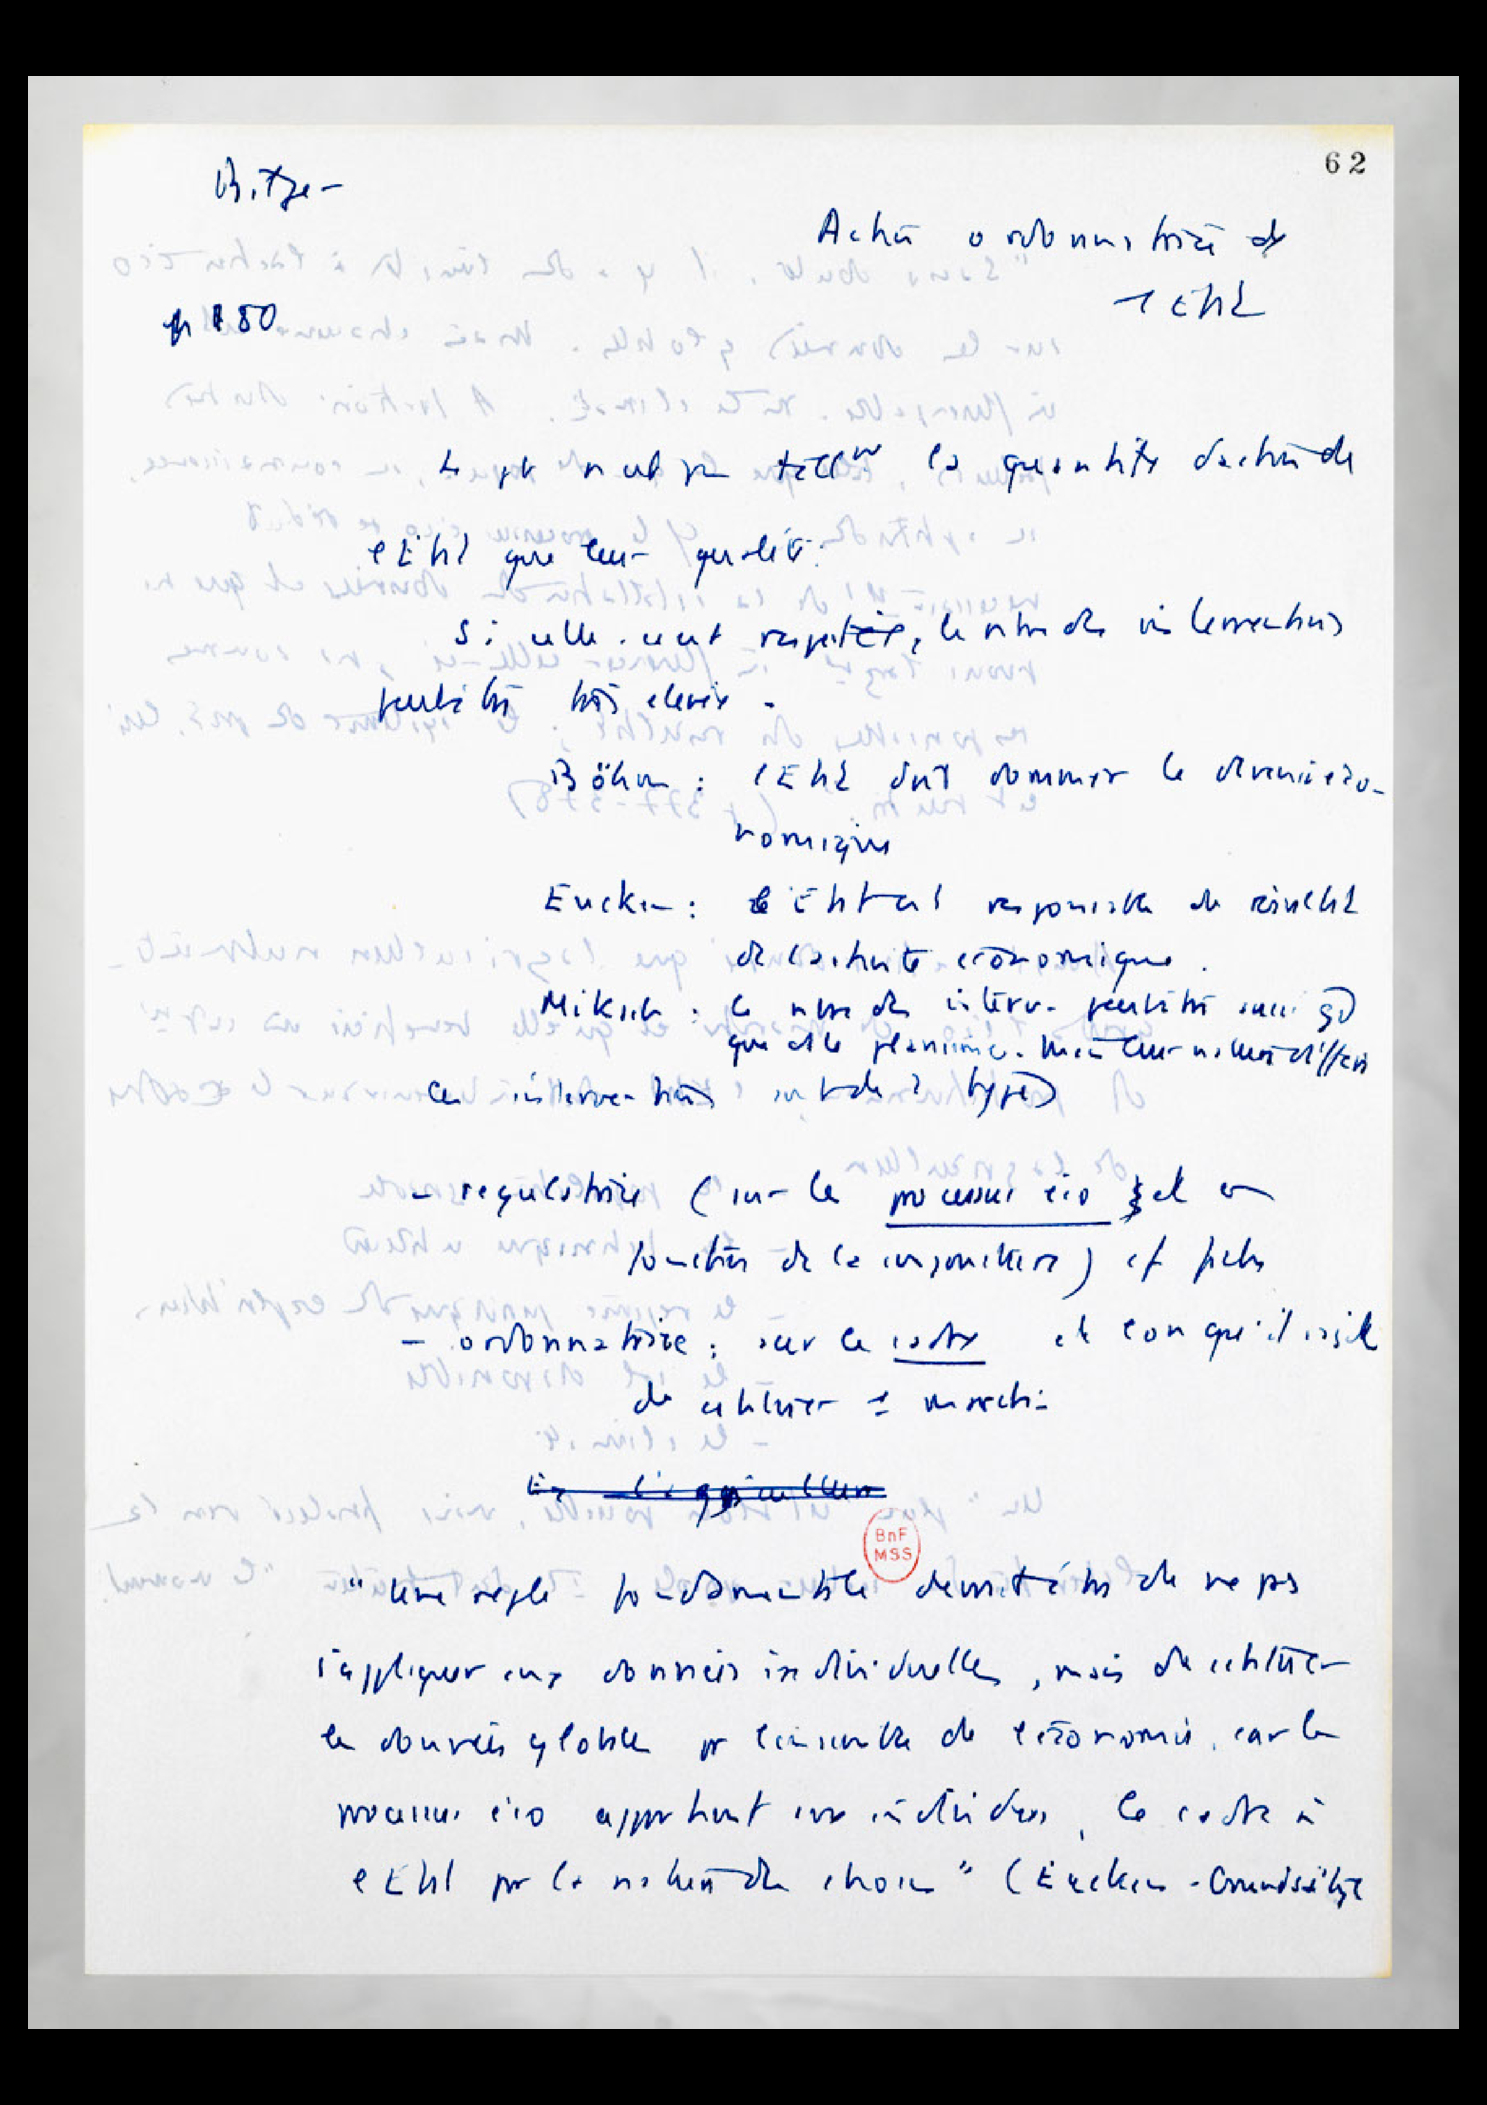 62
Bilger
Action ordonnatrice de
l'Etat
p 180
Le pb n'est pas tellt la quantité d'action de
l'Etat que leur qualité.
Si celle-ci est respectée, le nbre des interventions
peut être très élevé.
Böhm : l'Etat doit dominer le devenir éco-
nomique
Eucken : l'Etat est responsable du résultat
de l'activité économique.
Miksch : le nbre des interv. peut être aussi gd
que ds le planisme. Mais leur nature diffère
Ces interventions sont de 2 types
- régulatrice (sur le processus éco et en
fonction de la conjoncture) cf fiche
- ordonnatrice : sur le cadre et lorsqu'il s'agit
de utiliser le marché
Ex l'agriculture
BnF
MSS
"Une règle fondamentale devrait être de ne pas
s'appliquer aux données individuelles, mais de utiliser
les données globales pr l'ensemble de l'économie, car le
processus éco appartient aux individus, le cadre à
l'Etat pr la nature des choses" (Eucken - Grundsätze